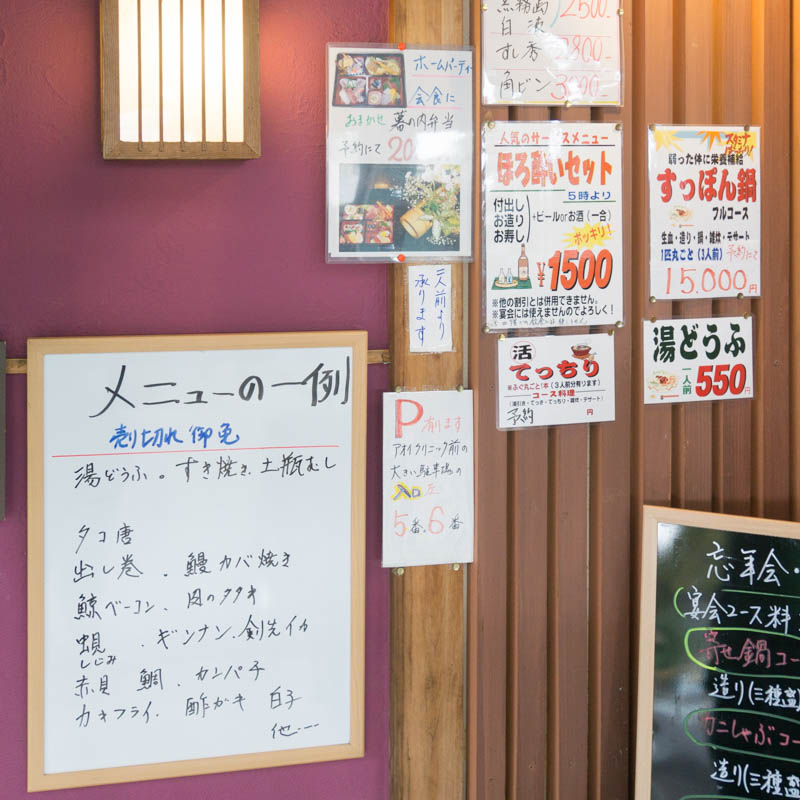 メニューの一例
売り切れ御免
湯どうふ。すき焼き.土瓶むし
タコ唐
出し巻.鰻カバ焼き
鯨ベーコン.肉のタタキ
蜆.ギンナン.剣先イカ
しじみ
赤貝 鯛.カンパチ
カキフライ.酢ガキ 白子
他....
ホームパーティー
会食に
おまかせ 幕の内弁当
予約にて
二人前より
承ります
P有ります
アオイクリニック前の
大きい駐車場の
入口左
5番.6番
2500-
白波
角ビン
人気のサービスメニュー
ほろ酔いセット
5時より
付出し
お造り
お寿し
+ビールorお酒(一合)
ポッキリ!
¥1500
※他の割引とは併用できません。
※宴会には使えませんのでよろしく!
活
てっちり
※ふぐ丸ごと1本(3人前分有ります)
コース料理
(湯引き・てっさ・てっちり・雑炊・デザート)
予約 円
スタミナ
弱った体に栄養補給
すっぽん鍋
フルコース
生血・造り・鍋・雑炊・デザート
1匹丸ごと(3人前)予約にて
15,000円
湯どうふ
一人前
550円
忘年会・
宴会コース料
寄せ鍋コー
造り(三種盛
カニしゃぶコー
造り(三種盛